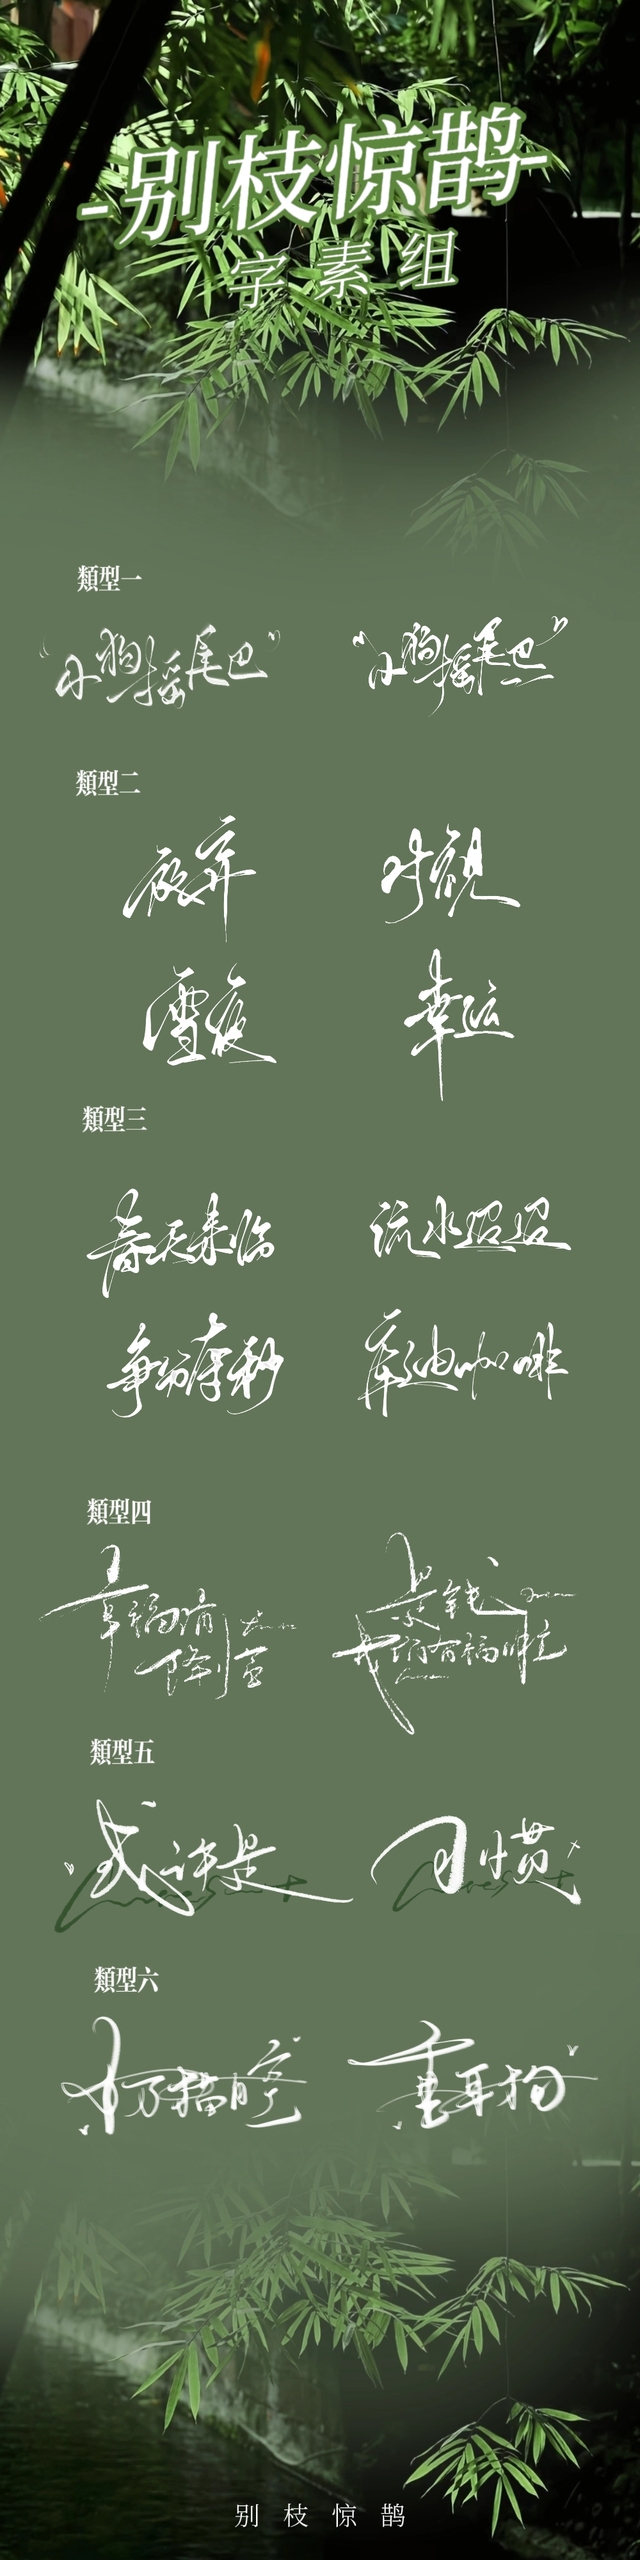 -别枝惊鹊-
字素组
類型一
“小狗摇尾巴” “小狗摇尾巴”
類型二
放弃 对视
雪夜 幸运
類型三
春天来临 流水迢迢
争分夺秒 蓝迪咖啡
類型四
幸福请
降临
是钱
我请有福啦
類型五
或许是 习惯
類型六
重耳狗
别枝惊鹊